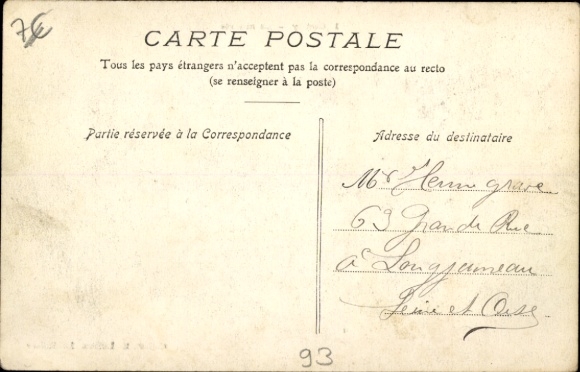 7€
CARTE POSTALE
Tous les pays étrangers n'acceptent pas la correspondance au recto
(se renseigner à la poste)
Partie réservée à la Correspondance
Adresse du destinataire
Mr Henri grave
63 Grande Rue
à Longjumeau
Seine et Oise
93